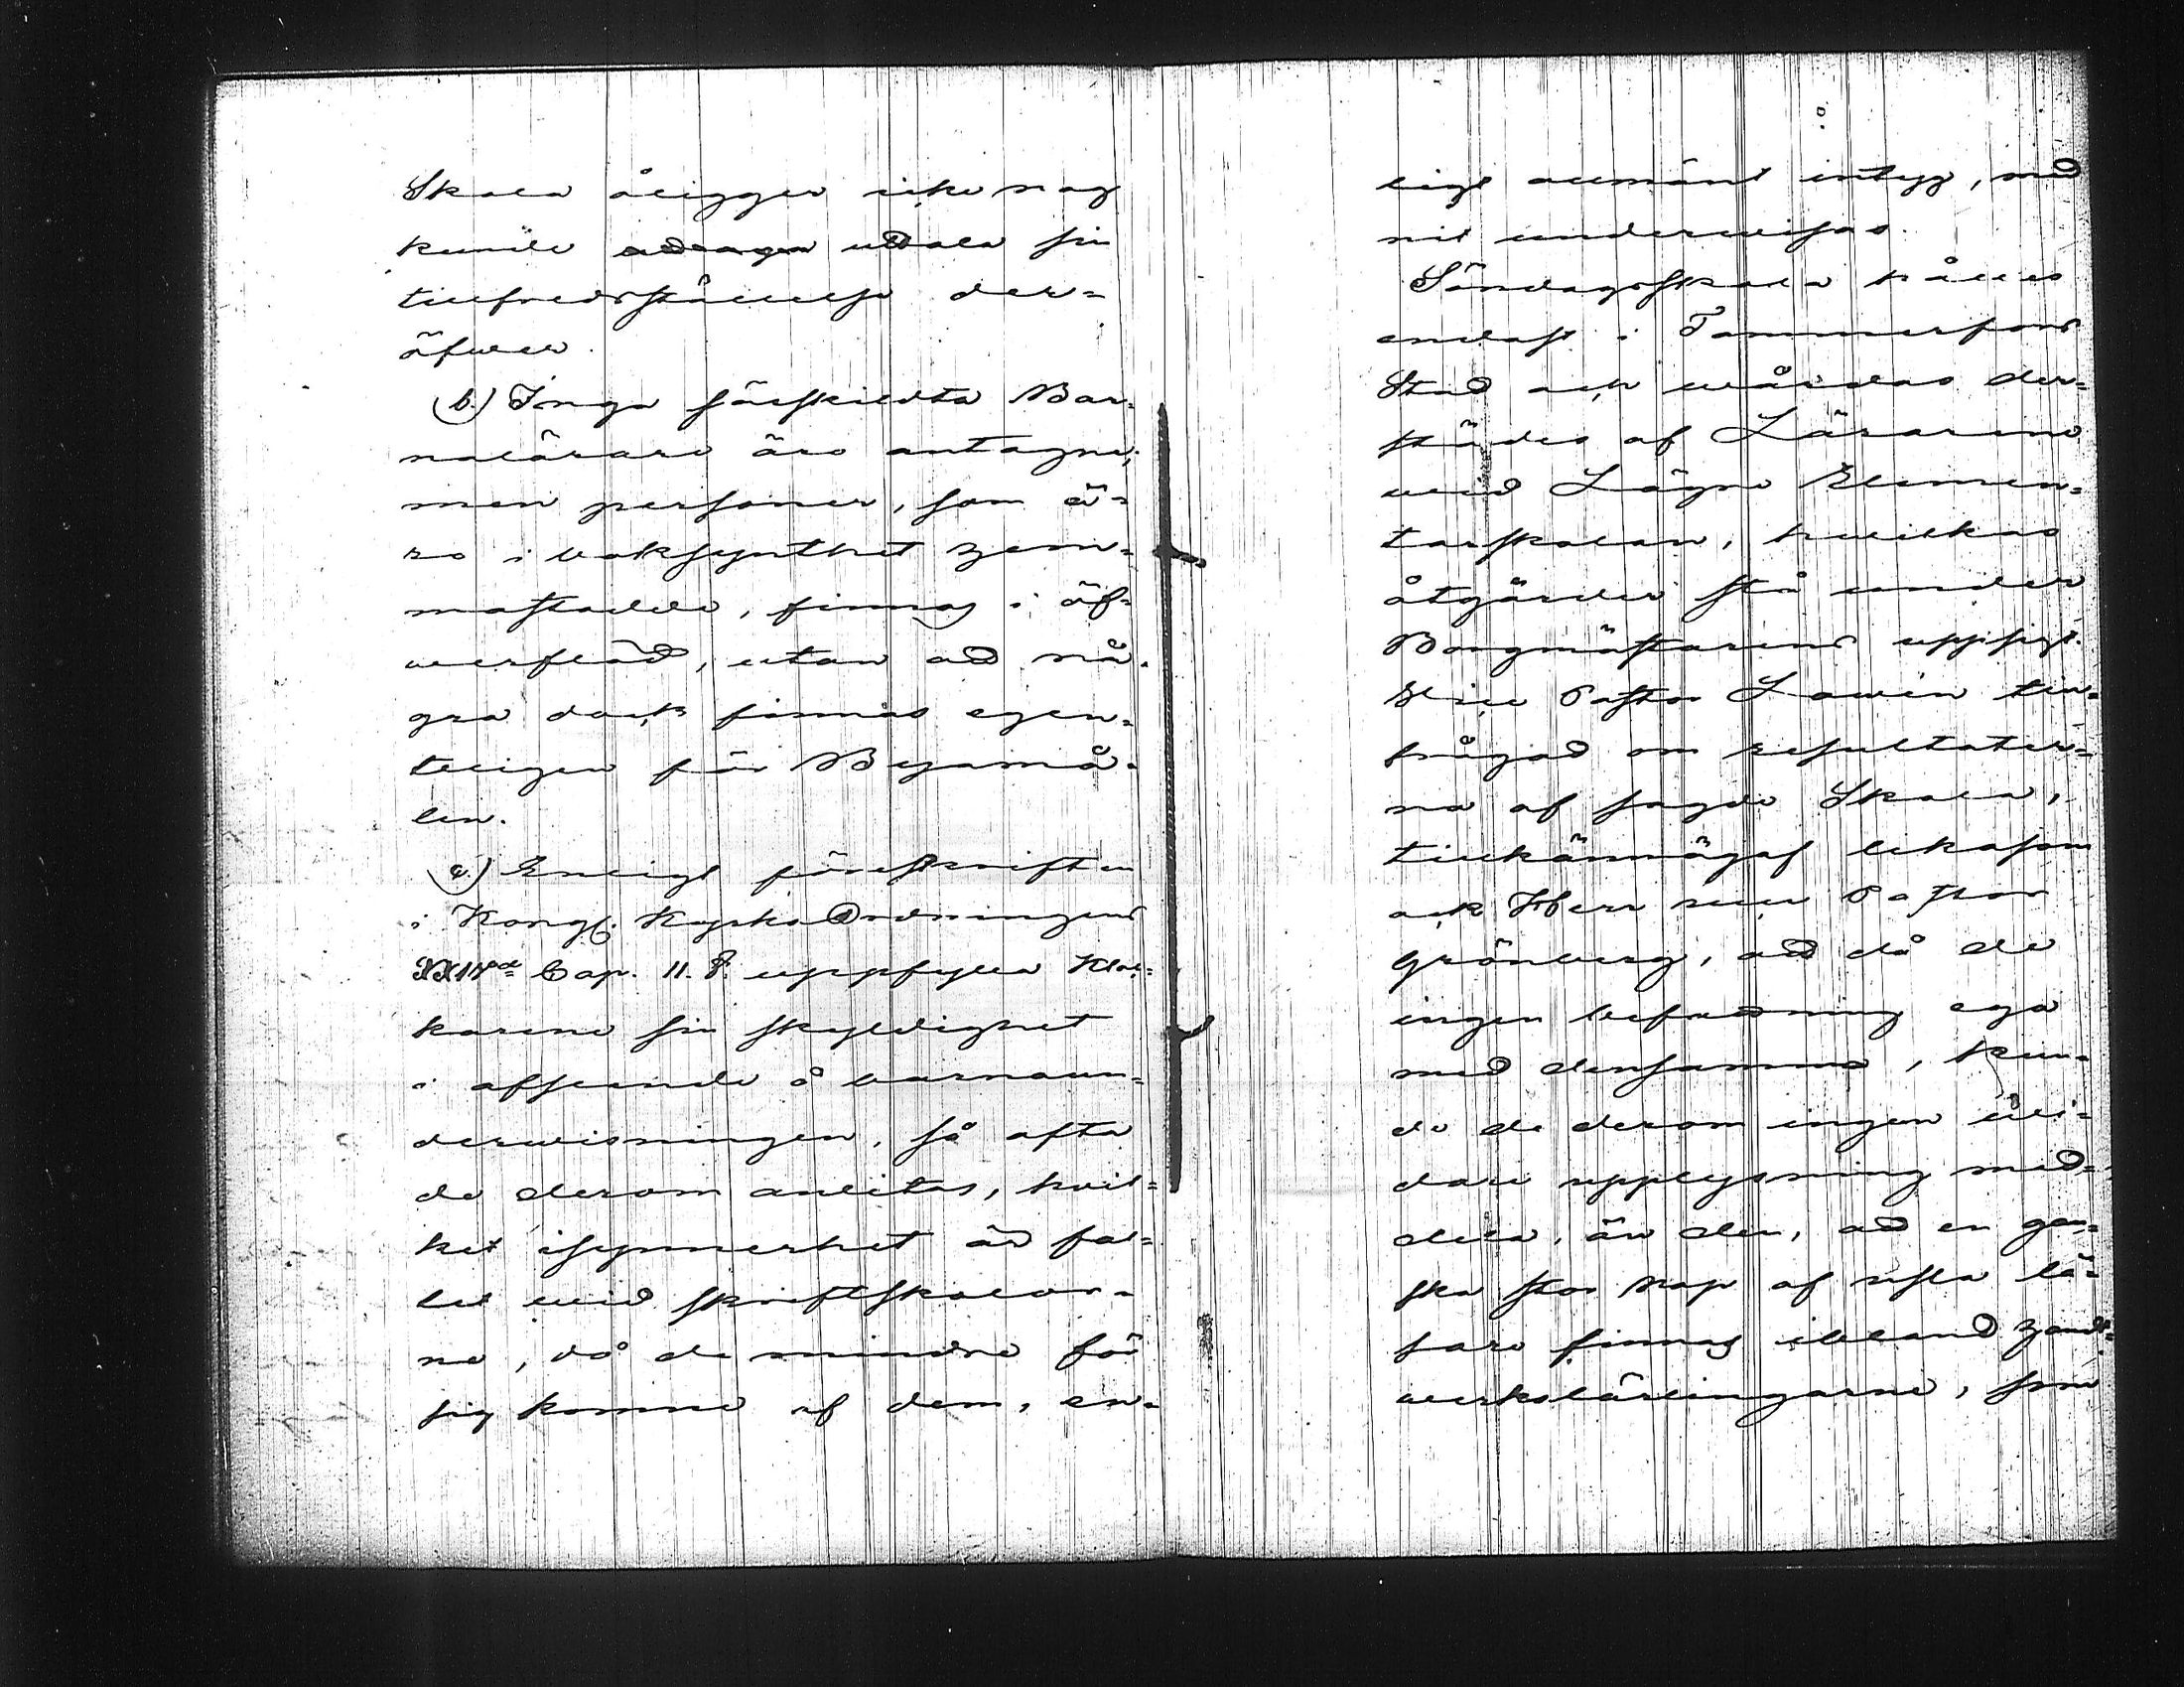 Skola åligger icke nog
kunde uttala sin
tillfredsställelse der=
öfwer.
b.) Inga särskildta Bar=
nalärare äro antagne;
men personer, som ä=
ro i boksynthet
, finnas i öf=
werflöd, utan att nå=
gra dock finnas egen=
teligen för Byamå=
len.
c.) Enligt föreskriften
i Kongl. Kyrko Ordningens
XXIV:de Cap. 11. §. uppfylla Kloc=
karene sin skyldighet
i afseende å barnaun=
derwisningen, så ofta
de derom anlitas, hvil=
ket isynnerhet är fal=
let wid skriftskolor=
ne, då de mindre för
sig komne af dem, en=
ligt allmänt intyg, med
nit underwisas.
Söndagsskola hålles
endast i Tammerfors
Stad och wårdas der=
städes af Lärarene
wid Lägre Elemen=
tarskolan, hwilkas
åtgärder stå under
Borgmästarens uppsigt.
Vice Pastor Lawén till=
frågad om resultater=
na af sagde Skola,
tillkännagaf likasom
ock Herr vice Pastor
Grönberg, att då de
ingen befattning ega
med densamma, kun=
de de derom ingen wi=
dare upplysning med=
dela, än den, att en gan=
ska stor hop af usla lä=
sare finnas ibland handt=
werkslärlingarne, som